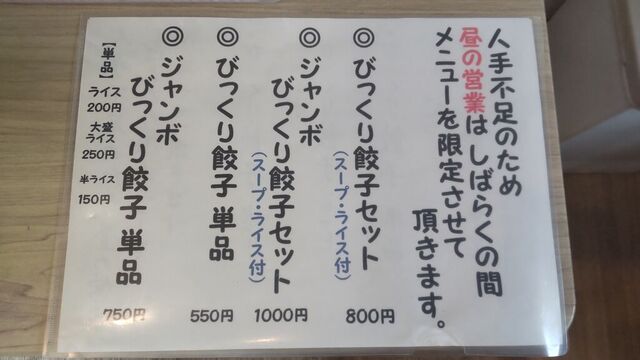 人手不足のため
昼の営業は しばらくの間
メニューを限定させて
頂きます。
◎ びっくり餃子セット
(スープ・ライス付)
800円
◎ ジャンボ
びっくり餃子セット
(スープ・ライス付)
1000円
◎ びっくり餃子 単品
550円
◎ ジャンボ
びっくり餃子 単品
750円
【単品】
ライス
200円
大盛
ライス
250円
半ライス
150円